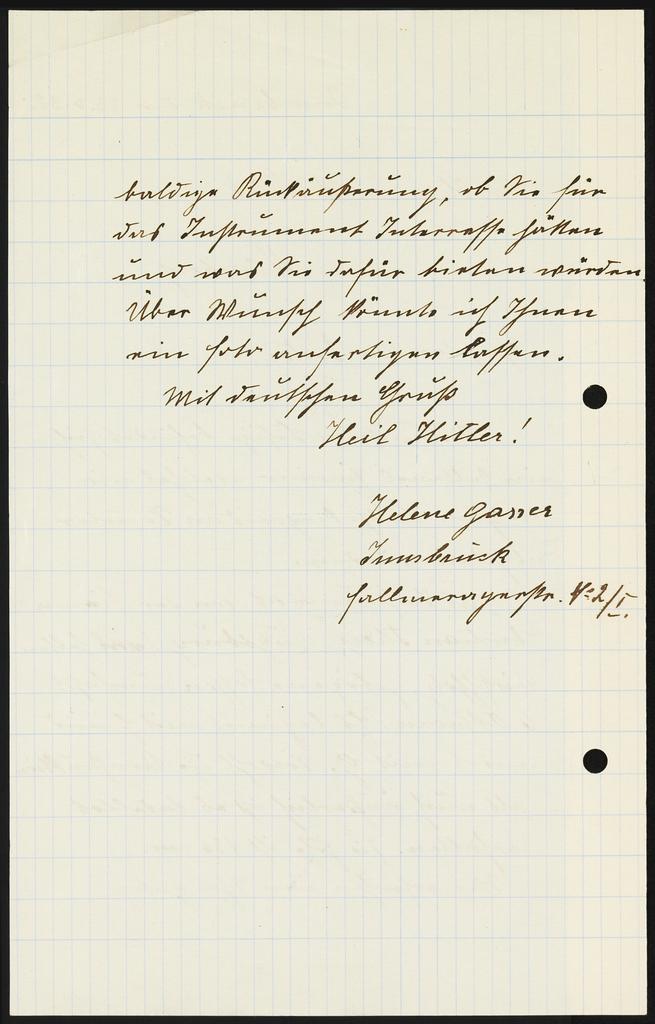 baldige Rückäußerung, ob Sie für
das Instrument Interesse hätten
und was Sie dafür bieten würden.
Über Wunsch könnte ich Ihnen
ein Foto anfertigen lassen.
Mit deutschen Gruß
Heil Hitler!
Helene Gasser
Innsbruck
Fallmerayerstr. No 2/I.